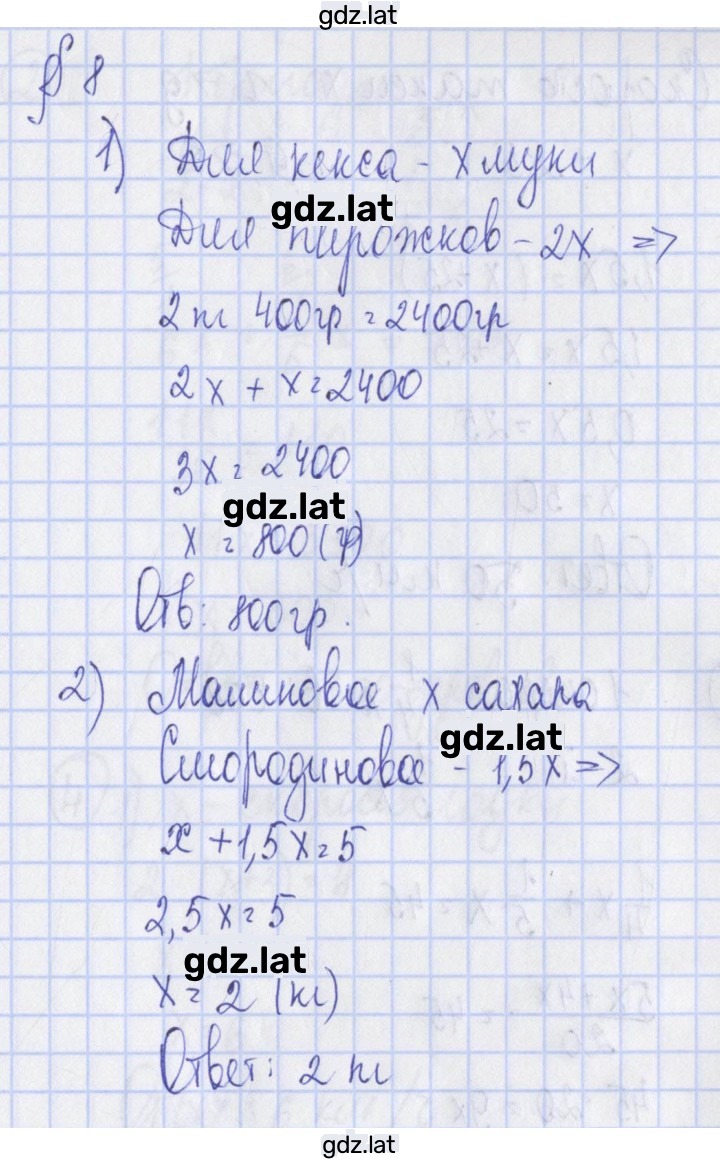 gdz.lat
§ 8
1) Для кекса - х муки
gdz.lat
Для пирожков - 2х =>
2 кг 400гр = 2400гр
2х + х = 2400
3х = 2400
gdz.lat
х = 800 (гр)
Отв: 800гр.
2) Малиновое х сахара
gdz.lat
Смородиновое - 1,5х =>
х + 1,5х = 5
2,5х = 5
gdz.lat
х = 2 (кг)
Ответ: 2 кг
gdz.lat